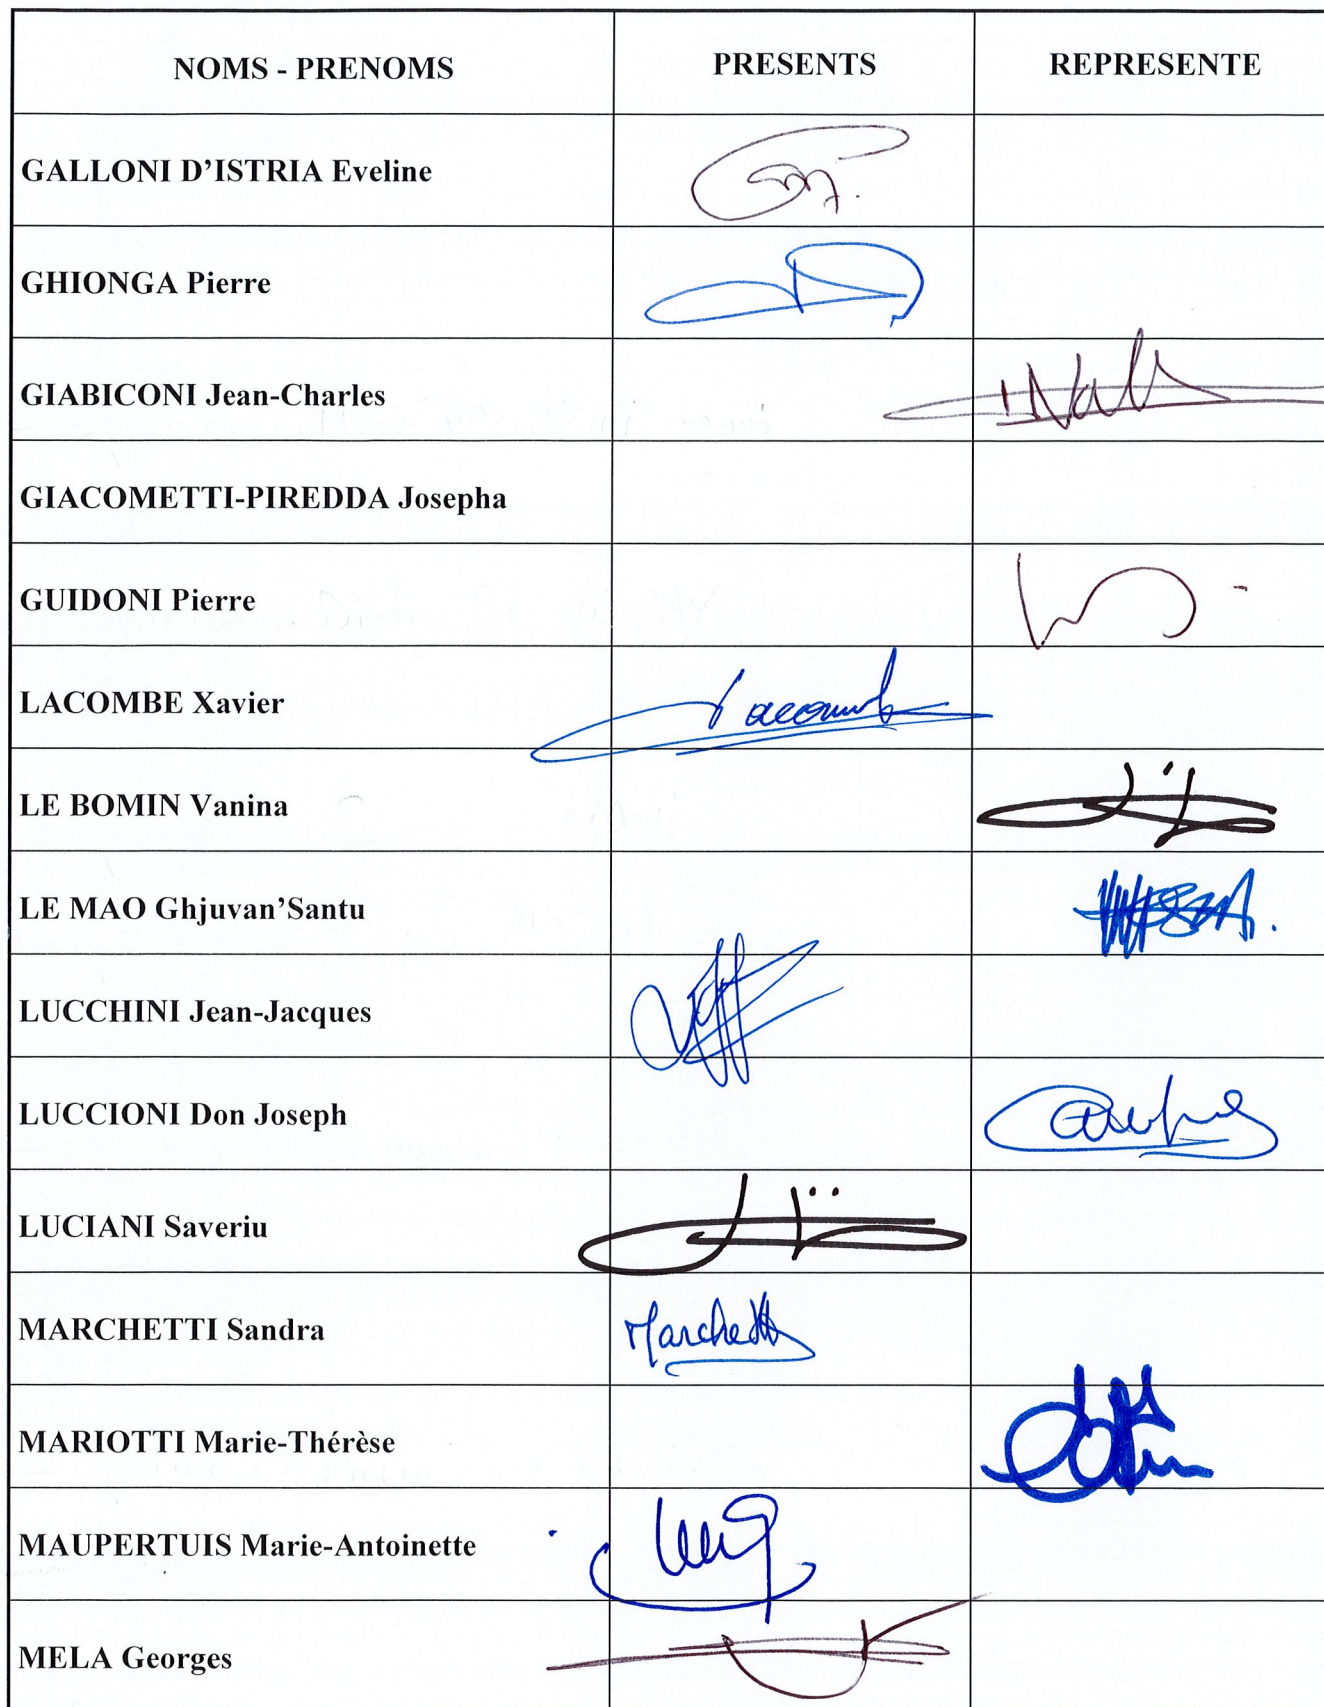 NOMS - PRENOMS PRESENTS REPRESENTE
GALLONI D'ISTRIA Eveline
GHIONGA Pierre
GIABICONI Jean-Charles
GIACOMETTI-PIREDDA Josepha
GUIDONI Pierre
LACOMBE Xavier Lacombe
LE BOMIN Vanina
LE MAO Ghjuvan'Santu
LUCCHINI Jean-Jacques
LUCCIONI Don Joseph
LUCIANI Saveriu
MARCHETTI Sandra Marchetti
MARIOTTI Marie-Thérèse
MAUPERTUIS Marie-Antoinette
MELA Georges